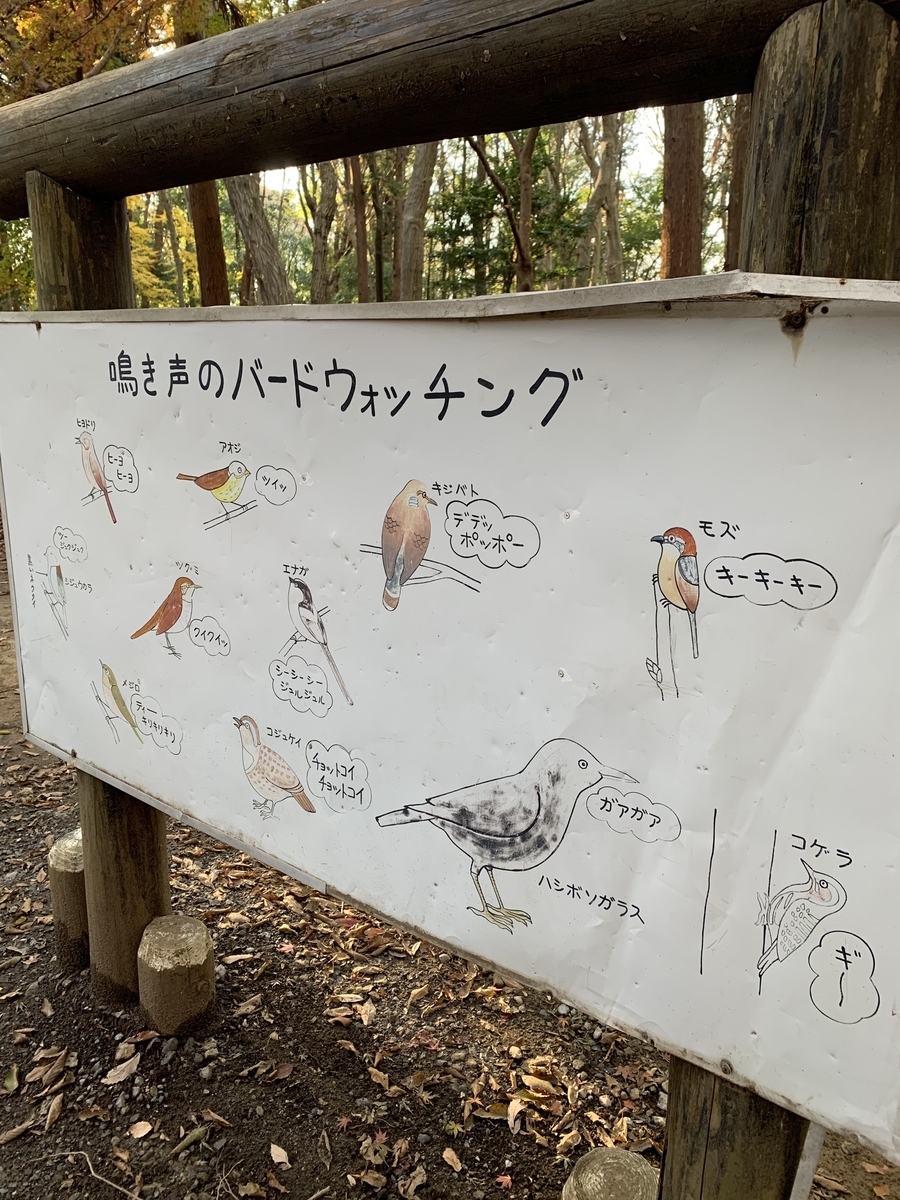 鳴き声のバードウォッチング
ヒヨドリ
ヒーヨ
ヒーヨ
アオジ
ツイッ
キジバト
デデッ
ポッポー
モズ
キーキーキー
ツー
ジュクジュク
シジュウカラ
ツグミ
クイクイッ
エナガ
シーシーシー
ジュルジュル
メジロ
ティー
キリキリキリ
コジュケイ
チョットコイ
チョットコイ
ガアガア
ハシボソガラス
コゲラ
ギー